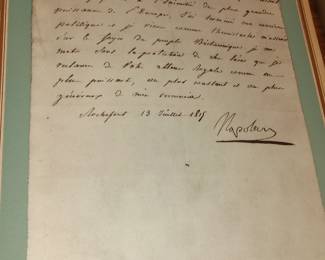 à l'inimitié des plus grandes
puissances de l'Europe, j'ai terminé ma carrière
politique et je viens comme Themistocle m'asseoir
sur le foyer du peuple Britannique je me
mets sous la protection de ses loix que je
reclame de V. Altesse Royale comme au
plus puissant, au plus constant et au plus
généreux de mes ennemis.
Rochefort 13 Juillet 1815
Napoleon